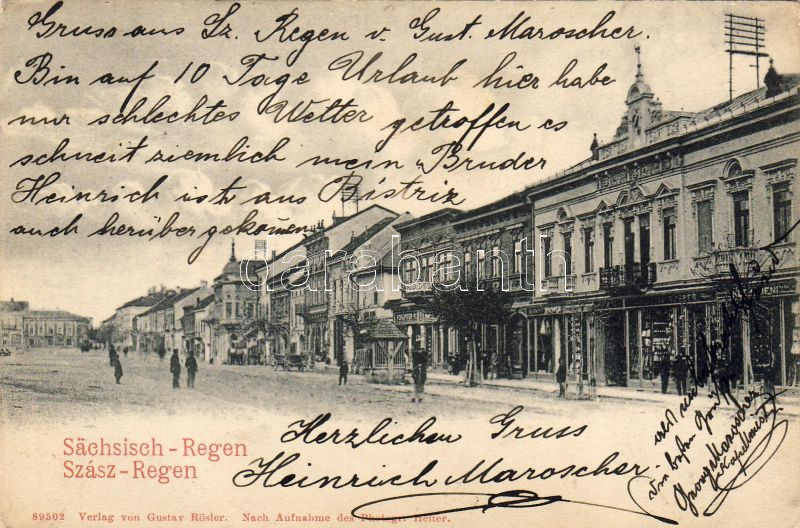 Gruss aus Sz. Regen v. Gust. Maroscher.
Bin auf 10 Tage Urlaub hier habe
nur schlechtes Wetter getroffen es
schneit ziemlich mein Bruder
Heinrich ist aus Bistriz
auch herüber gekom̄en
darabanth
Herzlichen Gruss
Heinrich Maroscher
Sächsisch-Regen
Szász-Regen
89502 Verlag von Gustav Rösler. Nach Aufnahme des Photogr. Heiter.